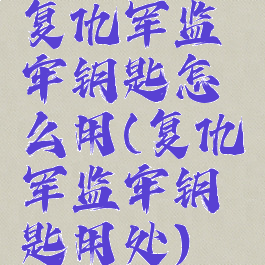 复仇军监
牢钥匙怎
么用(复仇
军监牢钥
匙用处)